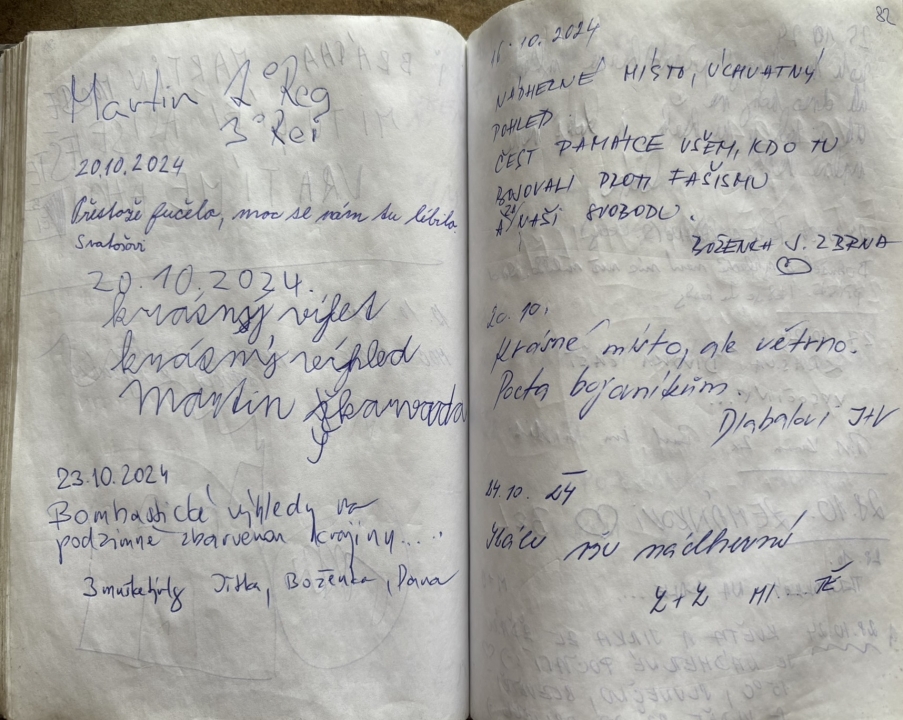 Martin 1° Reg
3° Rei
20.10.2024
Přestože fučelo, moc se nám tu líbilo.
Svatošovi
20.10.2024.
krásný
krásný
Martin Škawrada
23.10.2024
Bombastické výhledy na
podzimně zbarvenou krajinu.....
3 mušketýrky Jitka, Boženka, Dana
82
10.2024
NÁDHERNÉ MÍSTO, ÚCHVATNÝ
POHLED
ČEST PAMÁTCE VŠEM, KDO TU
BOJOVALI PROTI FAŠISMU
A ZA NAŠI SVOBODU.
BOŽENKA J. Z BRNA
20.10.
Krásné místo, ale větrno.
Pocta bojovníkům.
Dlabalovi J+V
24.10. 24
nádherné
Z+Z